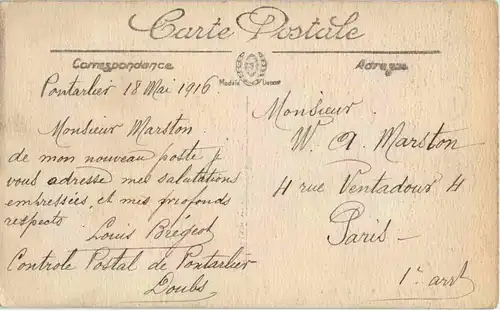 Carte Postale
Correspondance
Adresse
Pontarlier 18 Mai 1916
Monsieur Marston
de mon nouveau poste je
vous adresse mes salutations
empressées, et mes profonds
respects
Louis Brégeot
Controle Postal de Pontarlier
Doubs
Monsieur
W. A. Marston
4 rue Ventadour 4
Paris —
1er arrt